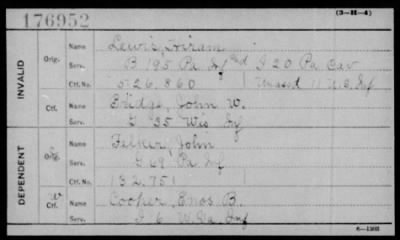 (3-H-4)
176952
INVALID
Orig.
Name Lewis, Hiram
Serv. B 195 Pa Inf and I 20 Pa Cav
Ctf. No. 526.860 Unassd 11 U.S. Inf
Ctf.
Name Bridge, John W.
Serv. G 35 Wis Inf
DEPENDENT
Orig.
Name John
Serv. G 69 Pa Inf
Ctf. No. 132.751
Ctf.
Name Cooper, Enos B.
Serv. I 6 W.Va. Inf